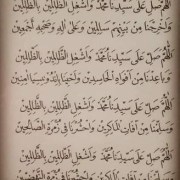 اللهم صل على سيدنا محمد وأشغل الظالمين بالظالمين
وأخرجنا من بينهم سالمين وعلى آله وصحبه أجمعين
اللهم صل على سيدنا محمد وأشغل الظالمين بالظالمين
من أفواه الحاسدين
اللهم صل على سيدنا محمد وأشغل الظالمين بالظالمين
وسلمنا من آفات الماكرين واحشرنا في زمرة الصالحين
اللهم صل على سيدنا محمد وأشغل الظالمين بالظالمين